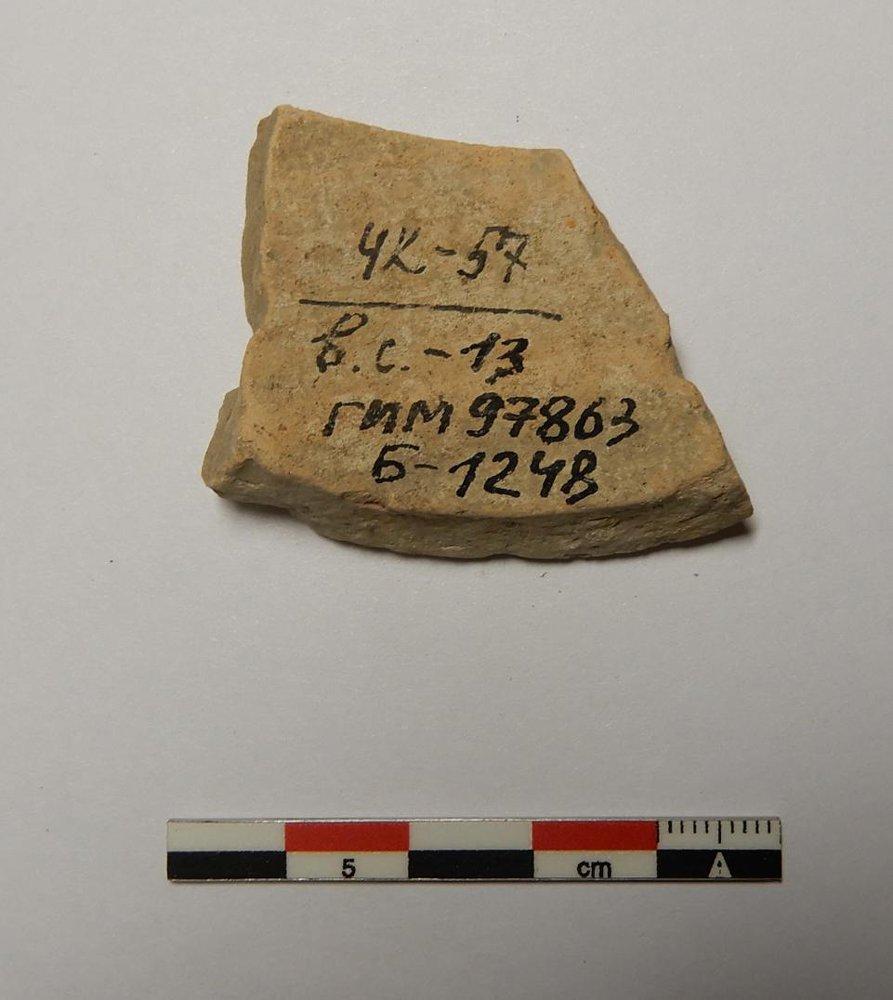 ЧК-57
в.с.-13
ГИМ 97863
Б-1248
5 cm
A